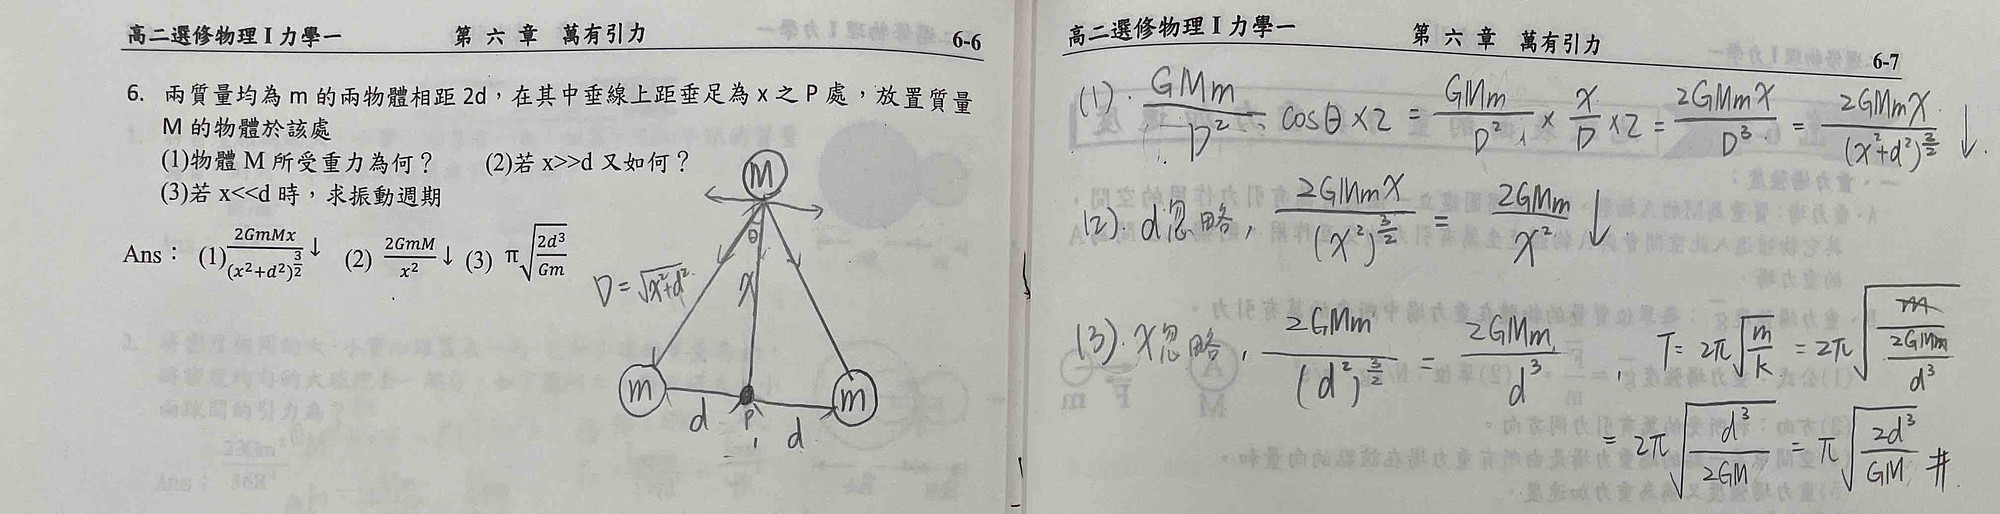 高二選修物理 I 力學一 第 六 章 萬有引力 6-6
6. 兩質量均為 m 的兩物體相距 2d，在其中垂線上距垂足為 x 之 P 處，放置質量
M 的物體於該處
(1)物體 M 所受重力為何？ (2)若 x>>d 又如何？
(3)若 x<<d 時，求振動週期
Ans： (1) \frac{2GmMx}{(x²+d²)^{\frac{3}{2}}}↓ (2) \frac{2GmM}{x²}↓ (3) π\sqrt{\frac{2d³}{Gm}}
M
θ
D = \sqrt{x²+d²}
x
m
m
d
P
d
高二選修物理 I 力學一 第 六 章 萬有引力 6-7
(1). \frac{GMm}{D²} cosθ×2 = \frac{GMm}{D²} × \frac{x}{D} ×2 = \frac{2GMmx}{D³} = \frac{2GMmx}{(x²+d²)^{\frac{3}{2}}} ↓
(2). d忽略, \frac{2GMmx}{(x²)^{\frac{3}{2}}} = \frac{2GMm}{x²} ↓
(3). x忽略, \frac{2GMm}{(d²)^{\frac{3}{2}}} = \frac{2GMm}{d³}, T = 2π\sqrt{\frac{m}{k}} = 2π\sqrt{\frac{m}{\frac{2GMm}{d³}}}
= 2π\sqrt{\frac{d³}{2GM}} = π\sqrt{\frac{2d³}{GM}} #